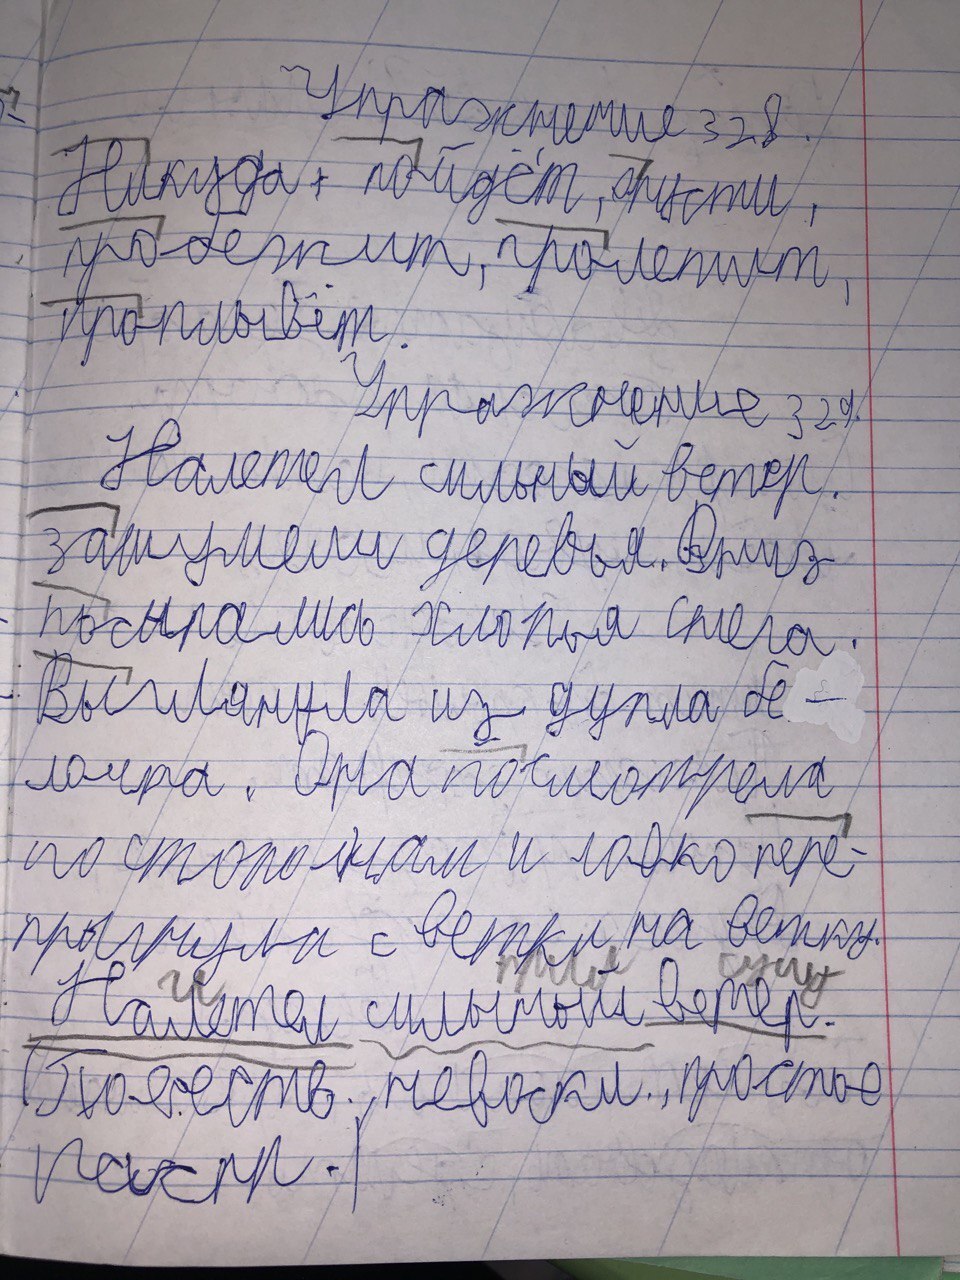 Упражнение 328.
Никуда, пойдёт, спусти,
пробежит, пролетит,
проплывёт.
Упражнение 329.
Налетел сильный ветер.
зашумели деревья. Вниз
посыпались хлопья снега.
Выглянула из дупла бе-
лочка. Она посмотрела
по сторонам и ловко пере-
прыгнула с ветки на ветку.
г прил сущ
Налетел сильный ветер.
(Повеств., невоскл., простое
распр.)